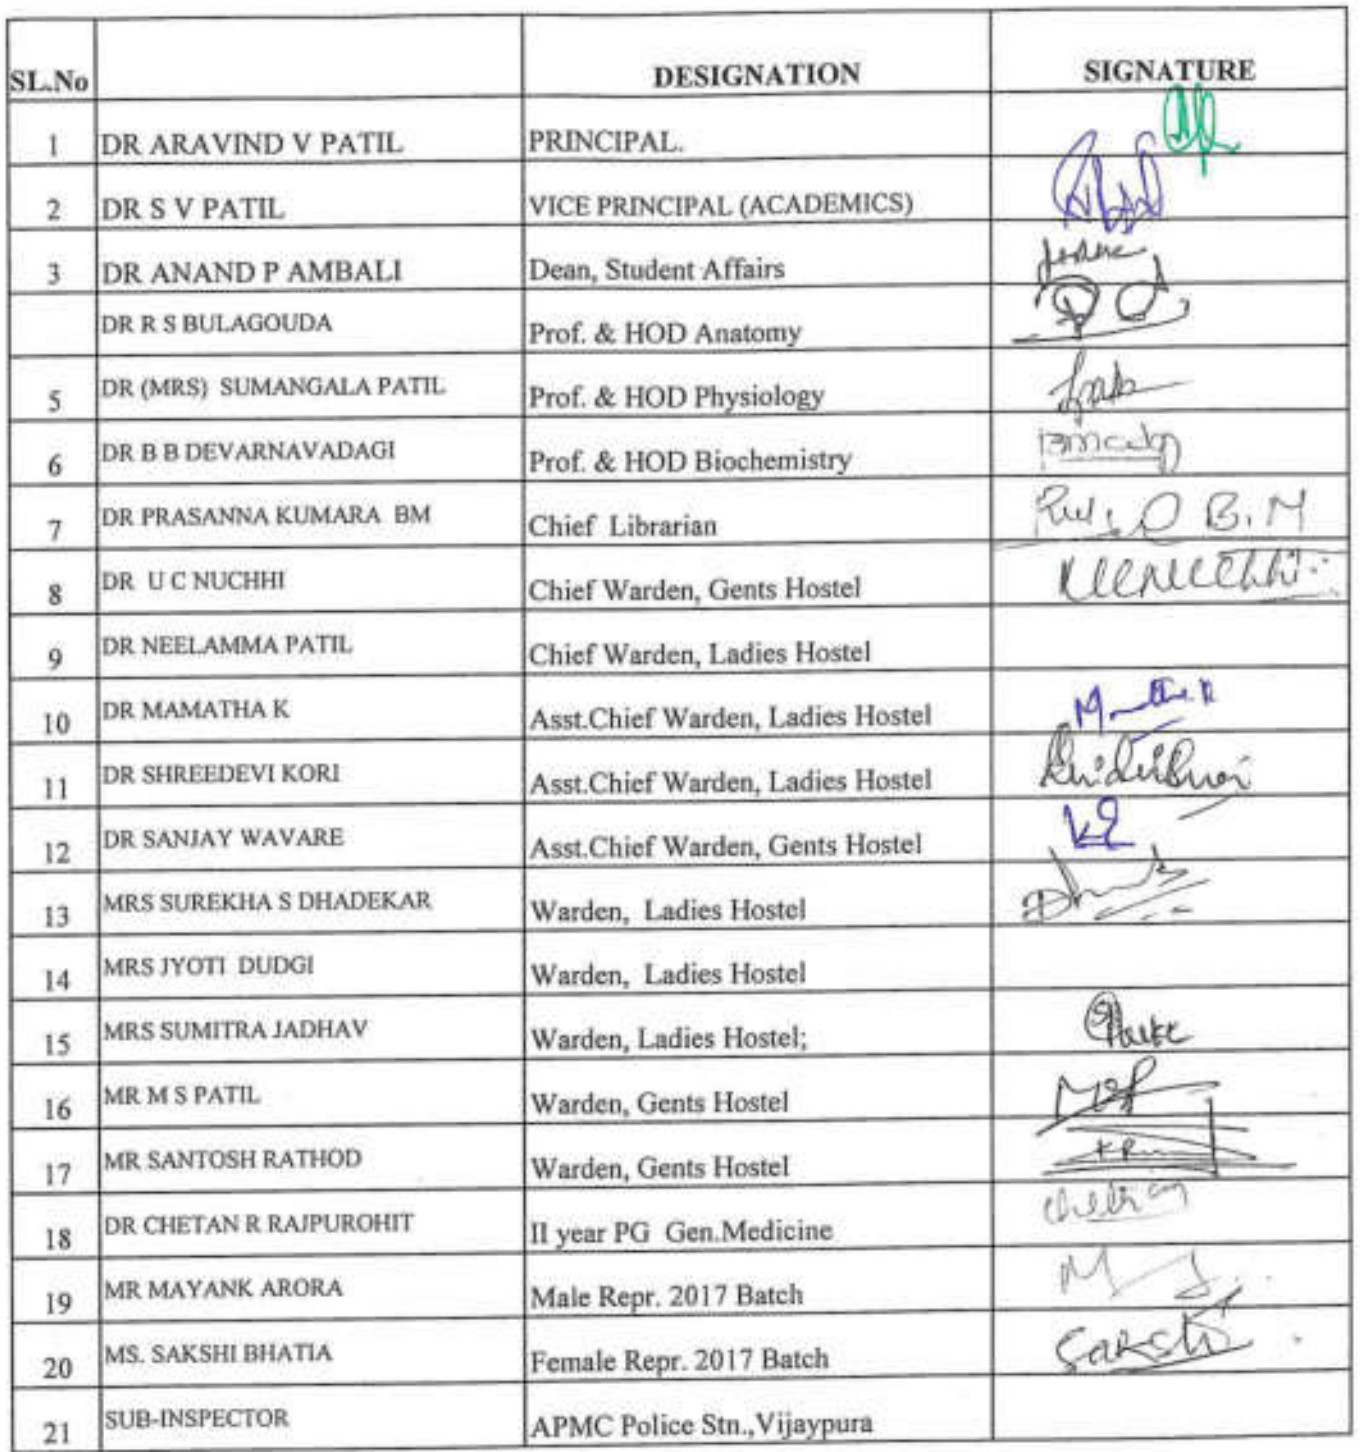 SL.No DESIGNATION SIGNATURE
1 DR ARAVIND V PATIL PRINCIPAL.
2 DR S V PATIL VICE PRINCIPAL (ACADEMICS)
3 DR ANAND P AMBALI Dean, Student Affairs
DR R S BULAGOUDA Prof. & HOD Anatomy
5 DR (MRS) SUMANGALA PATIL Prof. & HOD Physiology
6 DR B B DEVARNAVADAGI Prof. & HOD Biochemistry
7 DR PRASANNA KUMARA BM Chief Librarian B.M
8 DR U C NUCHHI Chief Warden, Gents Hostel
9 DR NEELAMMA PATIL Chief Warden, Ladies Hostel
10 DR MAMATHA K Asst.Chief Warden, Ladies Hostel
11 DR SHREEDEVI KORI Asst.Chief Warden, Ladies Hostel
12 DR SANJAY WAVARE Asst.Chief Warden, Gents Hostel
13 MRS SUREKHA S DHADEKAR Warden, Ladies Hostel
14 MRS JYOTI DUDGI Warden, Ladies Hostel
15 MRS SUMITRA JADHAV Warden, Ladies Hostel;
16 MR M S PATIL Warden, Gents Hostel
17 MR SANTOSH RATHOD Warden, Gents Hostel
18 DR CHETAN R RAJPUROHIT II year PG Gen.Medicine
19 MR MAYANK ARORA Male Repr. 2017 Batch
20 MS. SAKSHI BHATIA Female Repr. 2017 Batch
21 SUB-INSPECTOR APMC Police Stn.,Vijaypura